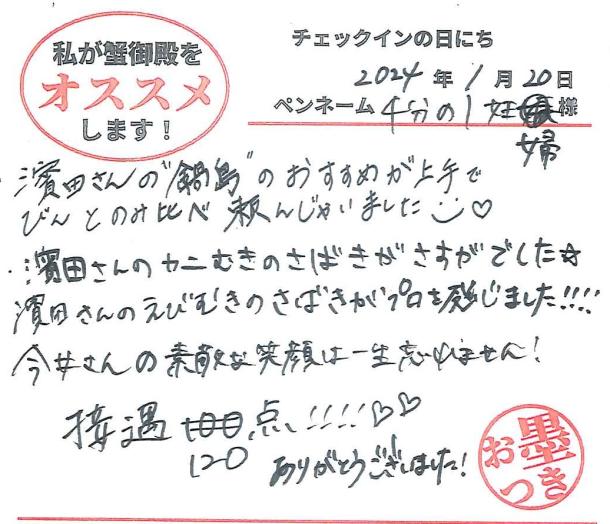 私が蟹御殿を
オススメ
します!
チェックインの日にち
2024年1月20日
ペンネーム 4分の1妊婦様
・濱田さんの"鍋島"のおすすめが上手で
びんとのみ比べ 頼んじゃいました♡
・濱田さんのカニむきのさばきがさすがでした☆
濱田さんのえびむきのさばきがプロを感じました!!!!
今井さんの素敵な笑顔は一生忘れません!
接遇 120点!!!!♡♡
ありがとうございました!
お墨つき